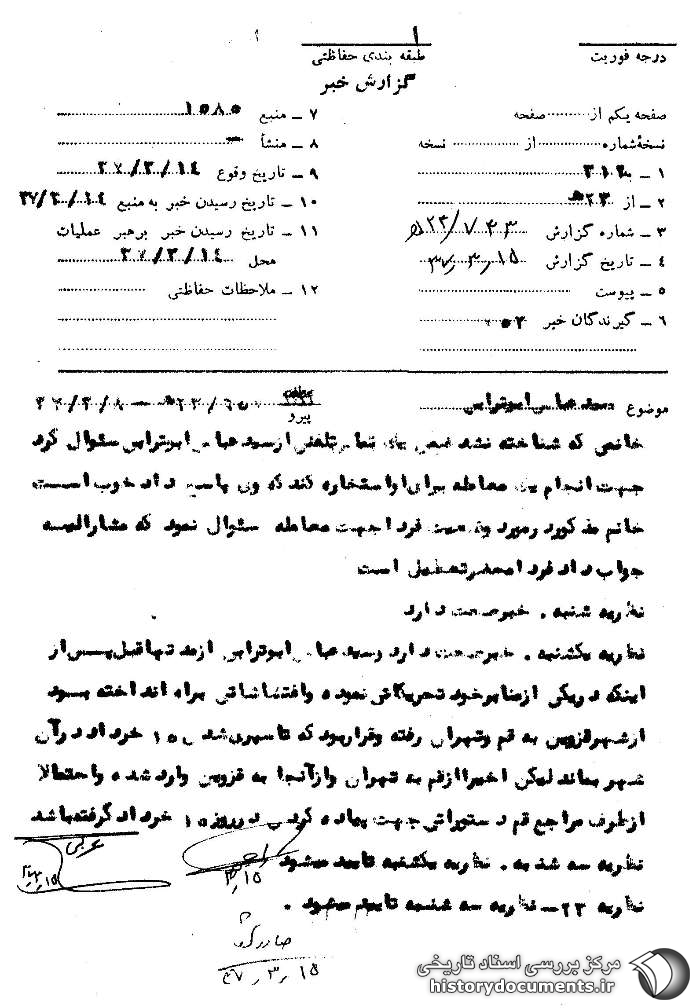 ۱
درجه فوریت
طبقه بندی حفاظتی
گزارش خبر
صفحه یکم از صفحه
نسخه شماره از نسخه
۱ ـ به ۳۱۲
۲ ـ از ۲۳ ه
۳ ـ شماره گزارش ۲۳/۷۴۳ ه
۴ ـ تاریخ گزارش ۳۷/۳/۱۵
۵ ـ پیوست
۶ ـ گیرندگان خبر
۷ ـ منبع ۱۵۸۵
۸ ـ منشأ ـ
۹ ـ تاریخ وقوع ۳۷/۳/۱۴
۱۰ ـ تاریخ رسیدن خبر به منبع ۳۷/۳/۱۴
۱۱ ـ تاریخ رسیدن خبر برهبر عملیات
محل ۳۷/۳/۱۴
۱۲ ـ ملاحظات حفاظتی
موضوع سید عباس ابوترابی
پیرو ۳۷/۳/۸
خانمی که شناخته نشد ضمن یک تماس تلفنی از سید عباس ابوترابی سئوال کرد
جهت انجام یک معامله برای او استخاره کند که وی پاسخ داد خوب است
خانم مذکور در مورد وضعیت فردا جهت معامله سئوال نمود که مشارالیه
جواب داد فردا محضر تعطیل است
نظریه شنبه . خبر صحت دارد
نظریه یکشنبه . خبر صحت دارد و سید عباس ابوترابی از مدتها قبل پس از
اینکه در یکی از منابر خود تحریکاتی نموده و اغتشاشاتی براه انداخته بود
از شهر قزوین به قم و تهران رفته و قرار بود که تا سپری شدن ۱۵ خرداد در آن
شهر بماند لیکن اخیرا از قم به تهران و از آنجا به قزوین وارد شده و احتمالا
از طرف مراجع قم دستوراتی جهت پیاده کردن در روز ۱۵ خرداد گرفته باشد
نظریه سه شنبه . نظریه یکشنبه تایید میشود
نظریه ۲۳ ـ نظریه سه شنبه تایید میشود .
۳/۱۵
صادر گردد
۳۷/۳/۱۵
مرکز بررسی اسناد تاریخی
historydocuments.ir